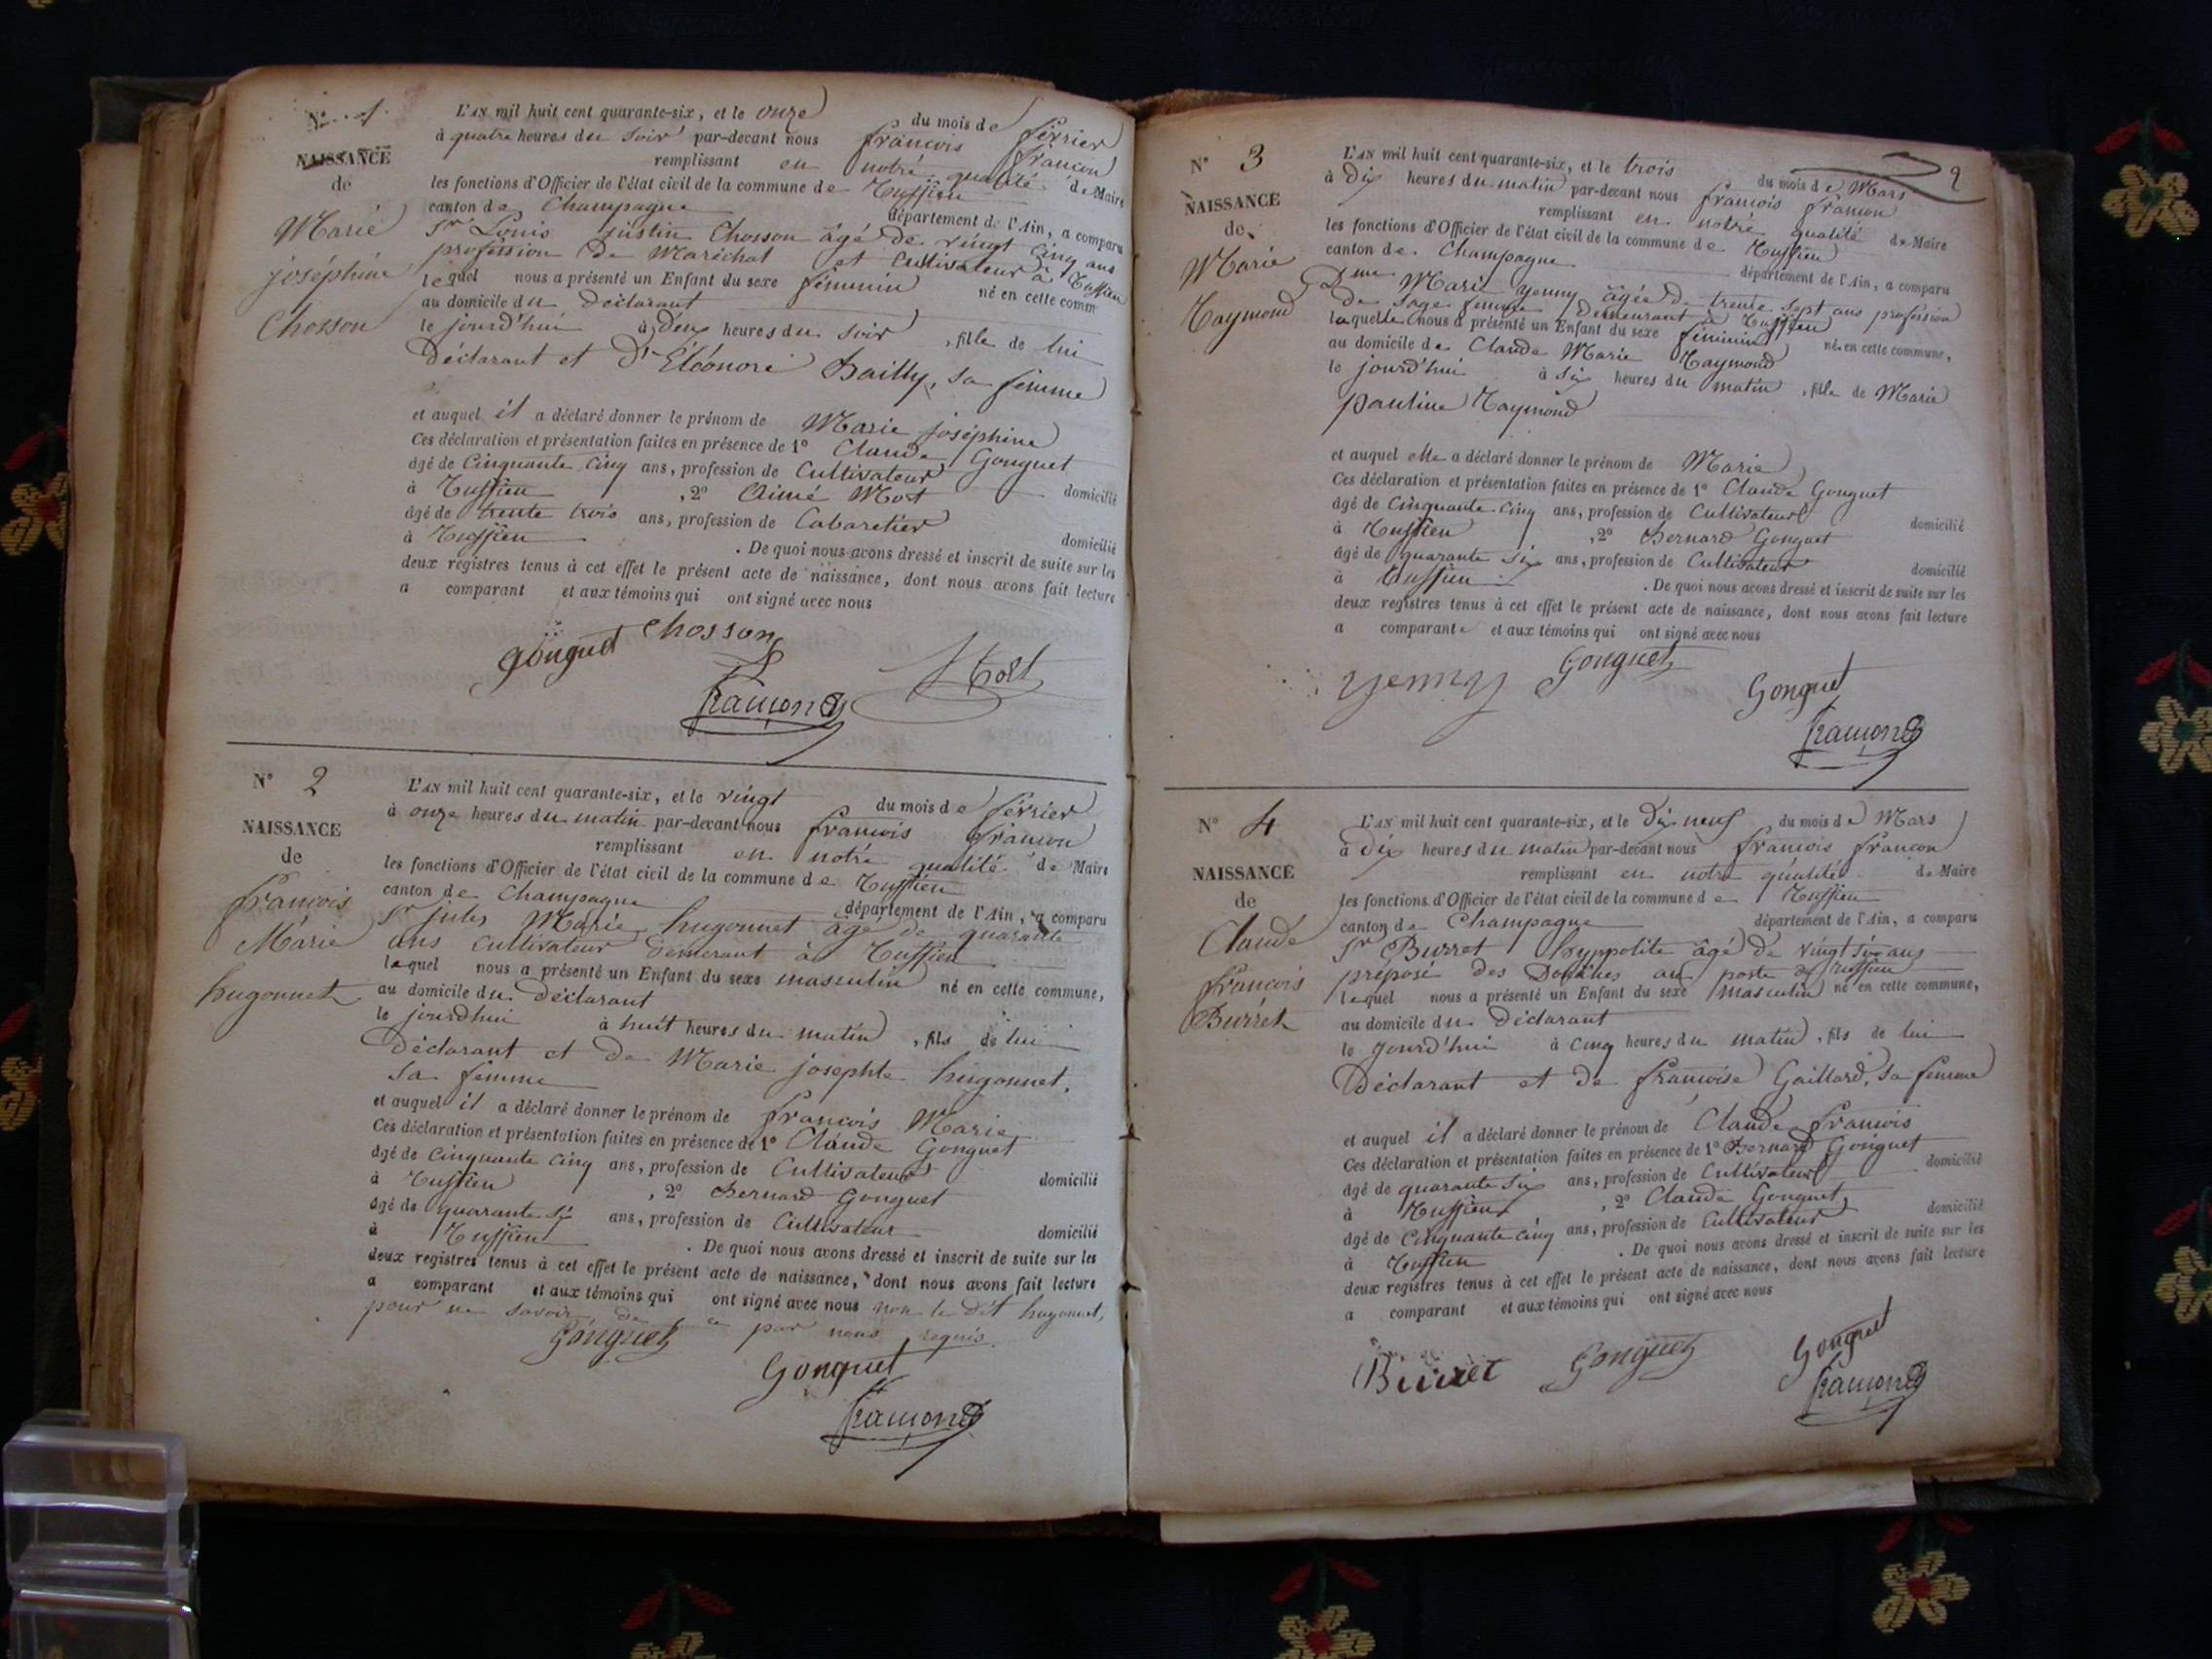 N° 1.
NAISSANCE
de
Marie
joséphine
Chosson
L'AN mil huit cent quarante-six, et le onze du mois de février
à quatre heures du soir par-devant nous françois françon
remplissant en notre qualité de Maire
les fonctions d'Officier de l'état civil de la commune de Ruffieu
canton de Champagne département de l'Ain, a comparu
Sr Louis justin Chosson âgé de vingt cinq ans
profession de Maréchal et Cultivateur à Ruffieu
lequel nous a présenté un Enfant du sexe féminin né en cette comm
au domicile du déclarant
le jourd'hui à deux heures du soir, fille de lui
Déclarant et de Éléonore Bailly, sa femme
et auquel il a déclaré donner le prénom de Marie joséphine
Ces déclaration et présentation faites en présence de 1° Claude Gonguet
âgé de Cinquante cinq ans, profession de Cultivateur domicilié
à Ruffieu, 2° Aimé Mort
âgé de trente trois ans, profession de Cabaretier domicilié
à Ruffieu. De quoi nous avons dressé et inscrit de suite sur les
deux registres tenus à cet effet le présent acte de naissance, dont nous avons fait lecture
a comparant et aux témoins qui ont signé avec nous
gonguet Chosson
françon Mort
N° 2
NAISSANCE
de
françois
Marie
hugonnet
L'AN mil huit cent quarante-six, et le vingt du mois de février
à onze heures du matin par-devant nous françois françon
remplissant en notre qualité de Maire
les fonctions d'Officier de l'état civil de la commune de Ruffieu
canton de Champagne département de l'Ain, a comparu
Sr jules Marie hugonnet âgé de quarante
ans cultivateur demeurant à Ruffieu
lequel nous a présenté un Enfant du sexe masculin né en cette commune,
au domicile du déclarant
le jourdhui à huit heures du matin, fils de lui
Déclarant et de Marie josephte hugonnet,
sa femme
et auquel il a déclaré donner le prénom de françois Marie
Ces déclaration et présentation faites en présence de 1° Claude Gonguet
âgé de cinquante cinq ans, profession de Cultivateur domicilié
à Ruffieu, 2° Bernard Gonguet
âgé de quarante six ans, profession de Cultivateur domicilié
à Ruffieu. De quoi nous avons dressé et inscrit de suite sur les
deux registres tenus à cet effet le présent acte de naissance, dont nous avons fait lecture
a comparant et aux témoins qui ont signé avec nous non le dit hugonnet,
pour ne savoir de ce par nous requis
Gonguet
Gonguet
françon
2
N° 3
NAISSANCE
de
Marie
Raymond
L'AN mil huit cent quarante-six, et le trois du mois de Mars
à Dix heures du matin par-devant nous françois françon
remplissant en notre qualité de Maire
les fonctions d'Officier de l'état civil de la commune de Ruffieu
canton de Champagne département de l'Ain, a comparu
Dme Marie yenny âgée de trente sept ans profession
de sage femme demeurant à Ruffieu
laquelle nous a présenté un Enfant du sexe féminin né en cette commune,
au domicile de Claude Marie Raymond
le jourd'hui à six heures du matin, fille de Marie
pauline Raymond
et auquel elle a déclaré donner le prénom de Marie
Ces déclaration et présentation faites en présence de 1° Claude Gonguet
âgé de Cinquante cinq ans, profession de Cultivateur domicilié
à Ruffieu, 2° Bernard Gonguet
âgé de quarante six ans, profession de Cultivateur domicilié
à Ruffieu. De quoi nous avons dressé et inscrit de suite sur les
deux registres tenus à cet effet le présent acte de naissance, dont nous avons fait lecture
a comparante et aux témoins qui ont signé avec nous
yenny Gonguet Gonguet
françon
N° 4
NAISSANCE
de
Claude
françois
Burret
L'AN mil huit cent quarante-six, et le Dix neuf du mois de Mars
à dix heures du matin par-devant nous françois françon
remplissant en notre qualité de Maire
les fonctions d'Officier de l'état civil de la commune de Ruffieu
canton de Champagne département de l'Ain, a comparu
Sr Burret hyppolite âgé de vingt six ans
préposé des Douanes au poste de Ruffieu
lequel nous a présenté un Enfant du sexe masculin né en cette commune,
au domicile du Déclarant
le jourd'hui à cinq heures du matin, fils de lui
Déclarant et de françoise Gaillard, sa femme
et auquel il a déclaré donner le prénom de Claude françois
Ces déclaration et présentation faites en présence de 1° Bernard Gonguet
âgé de quarante six ans, profession de Cultivateur domicilié
à Ruffieu, 2° Claude Gonguet
âgé de Cinquante cinq ans, profession de Cultivateur domicilié
à Ruffieu. De quoi nous avons dressé et inscrit de suite sur les
deux registres tenus à cet effet le présent acte de naissance, dont nous avons fait lecture
a comparant et aux témoins qui ont signé avec nous
Burret Gonguet Gonguet
françon